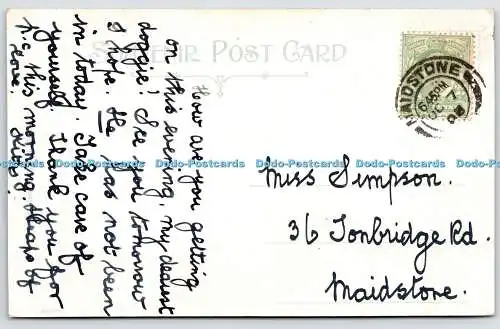 SOUVENIR POST CARD
MAIDSTONE
How are you getting
on this evening, my dearest
doggie! See you tomorrow
I hope. He has not been
in today. Take care of
yourself. Thank you for
p.c. this morning. Heaps of
love.
Miss Simpson.
36 Tonbridge Rd.
Maidstone.
Dodo-Postcards Dodo-Postcards Dodo-Postcards Dodo-Postcards Dodo-Postcards